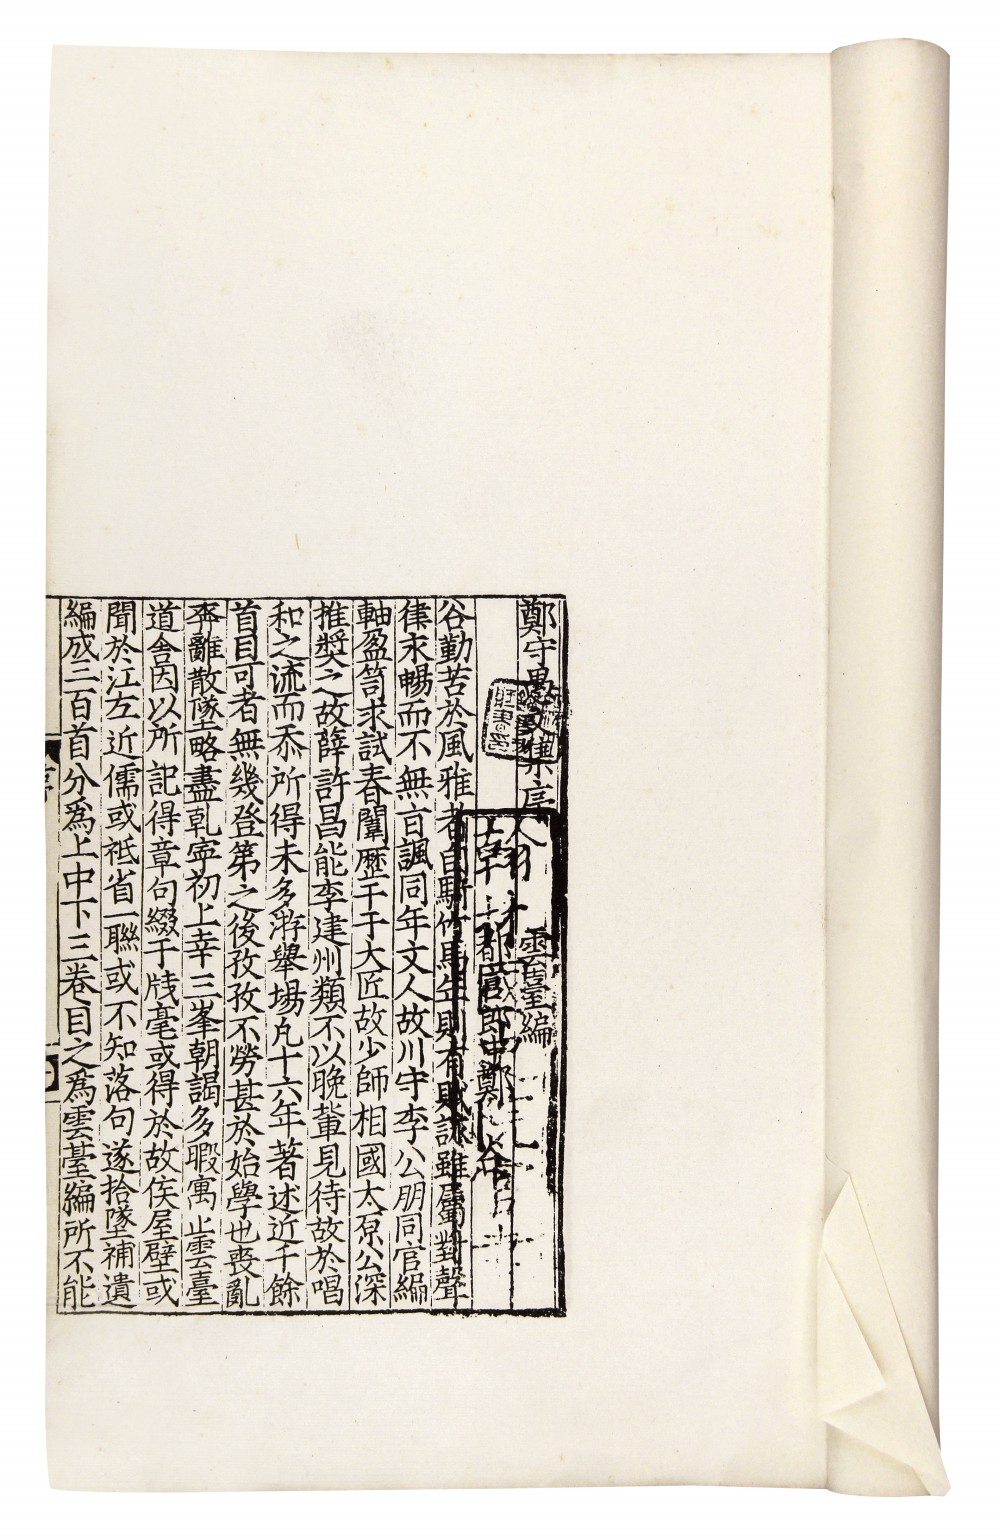 鄭守愚文集序　雲臺編
朝　都官郎中鄭谷
谷勤苦於風雅者自騎竹馬年則有賦詠雖屬對聲
律未暢而不無言諷同年丈人故川守李公朋同官編
軸盈笥求試春闈歷干于大匠故少師相國太原公深
推獎之故薛許昌能李建州類不以晚輩見待故於唱
和之流而忝所得未多游舉場凡十六年著述近千餘
首自可者無幾登第之後孜孜不勞甚於始學也喪亂
奔離散墜略盡乹寧初上幸三峯朝謁多暇寓止雲臺
道舍因以所記得章句綴于牋毫或得於故侯屋壁或
聞於江左近儒或祗省一聯或不知落句遂拾墜補遺
編成三百首分爲上中下三卷目之爲雲臺編所不能